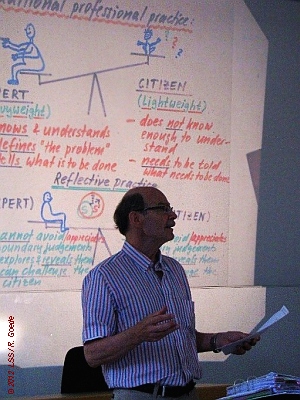 aditional professional practice:
? ? ?
PERT
vyweight)
nows & understands
defines "the problem"
tells what is to be done
CITIZEN
(Lightweight)
- does not know
enough to under-
stand
- needs to be told
what needs to be done
Reflective practice
XPERT)
TIZEN)
cannot avoid (appreciate
boundary judgements
explores & reveals them
can challenge the
citizen
avoid (appreciate)
judgements
reveals them
nge the
© 2012 LSS / R. Goede